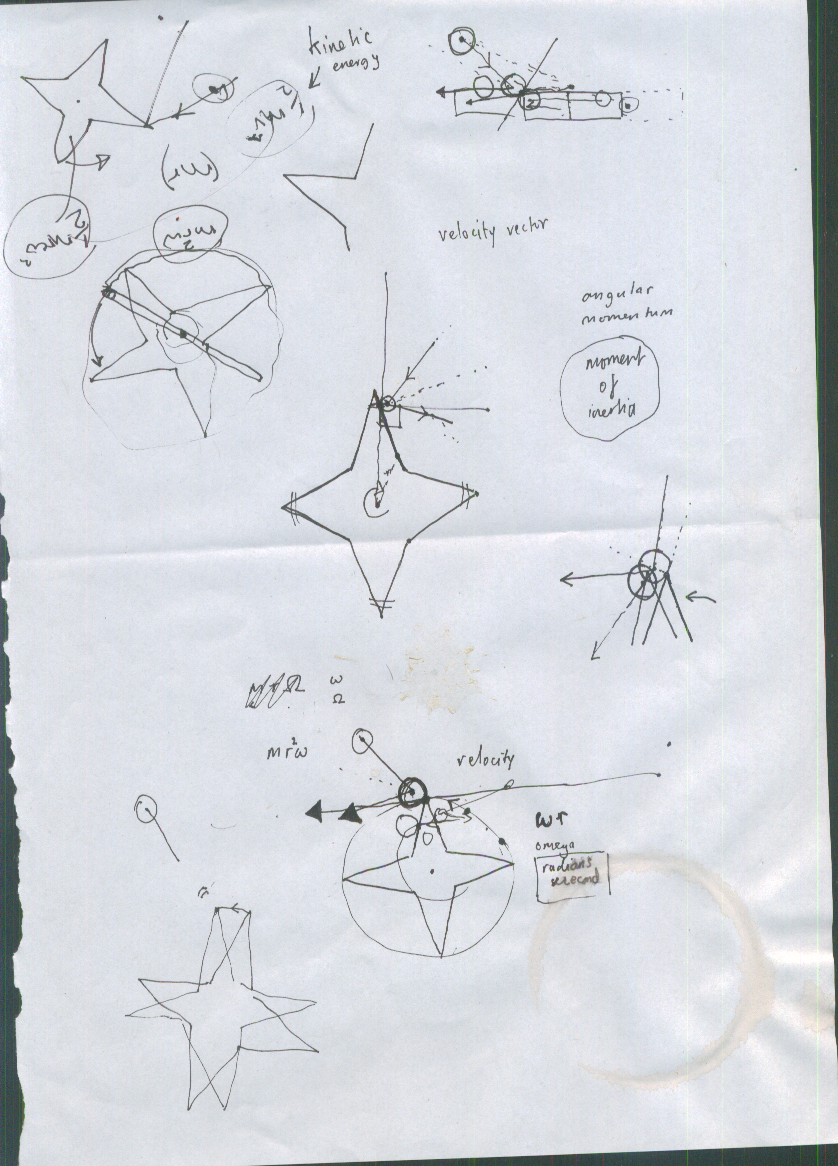 kinetic
energy
velocity vector
angular
momentum
moment
of
inertia
ω
Ω
mr²ω
velocity
ωr
omega
radians
second